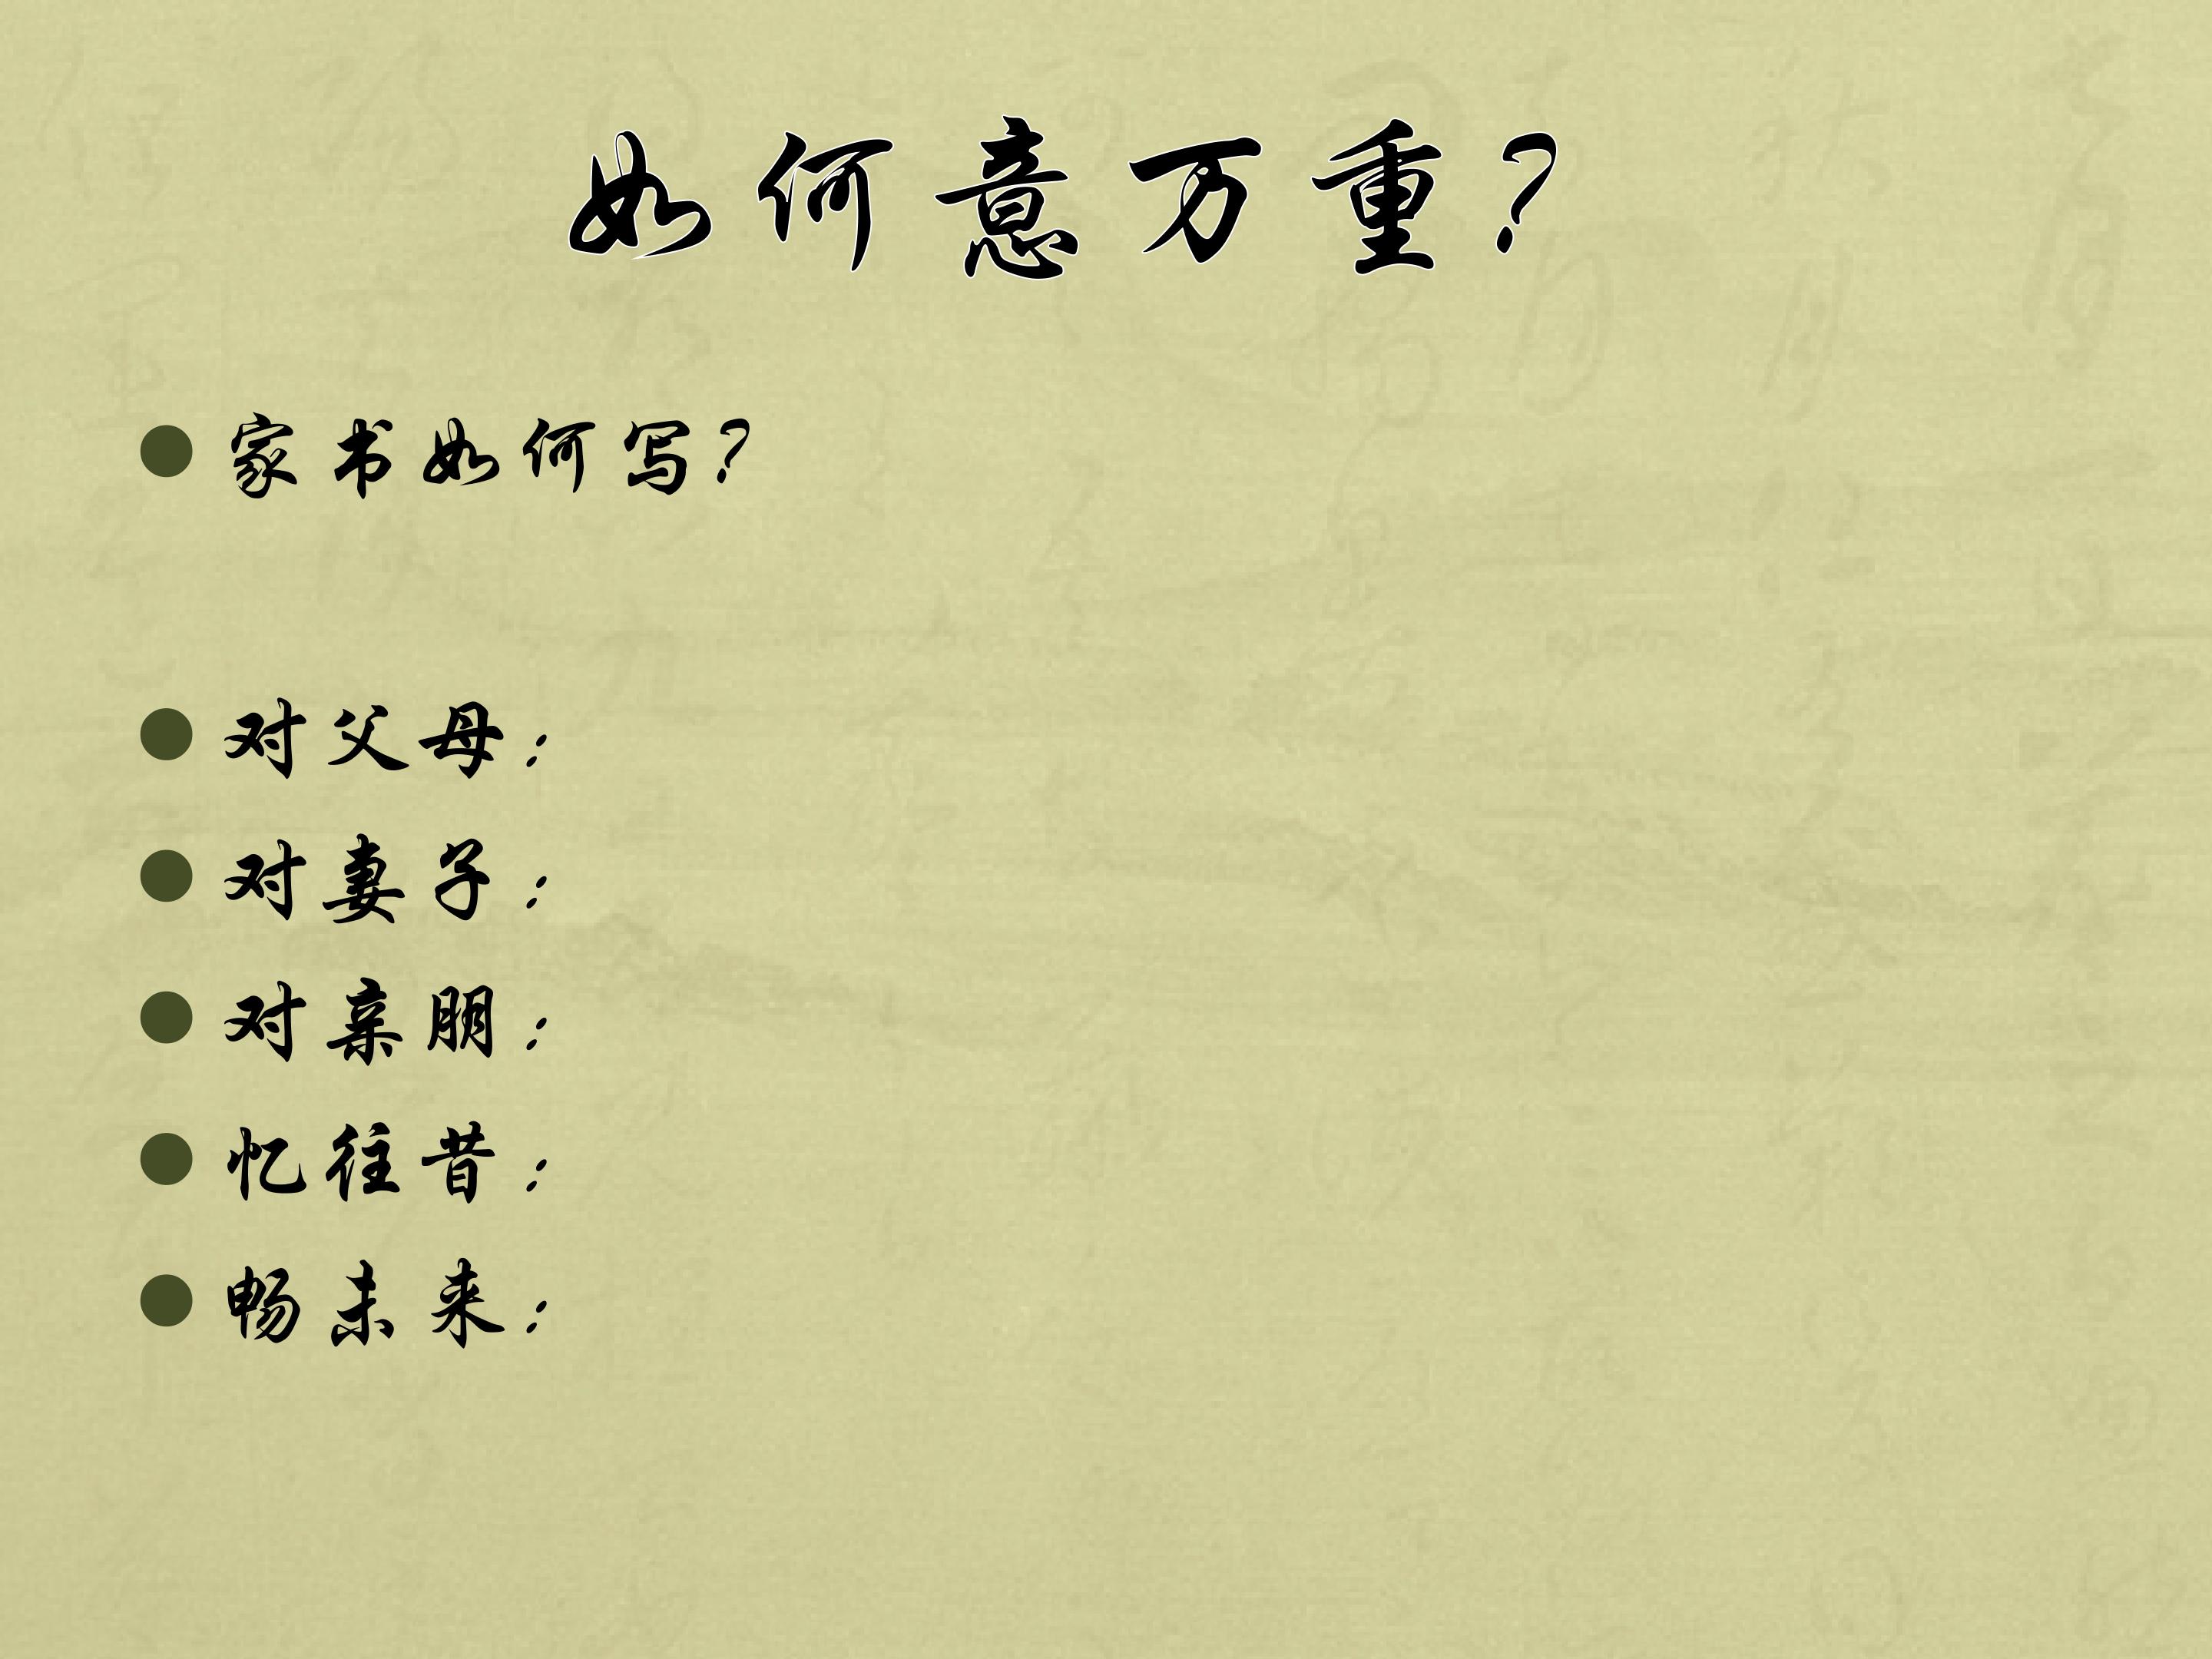 如何意万重?
家书如何写?
对父母:
对妻子:
对亲朋:
忆往昔:
畅未来: